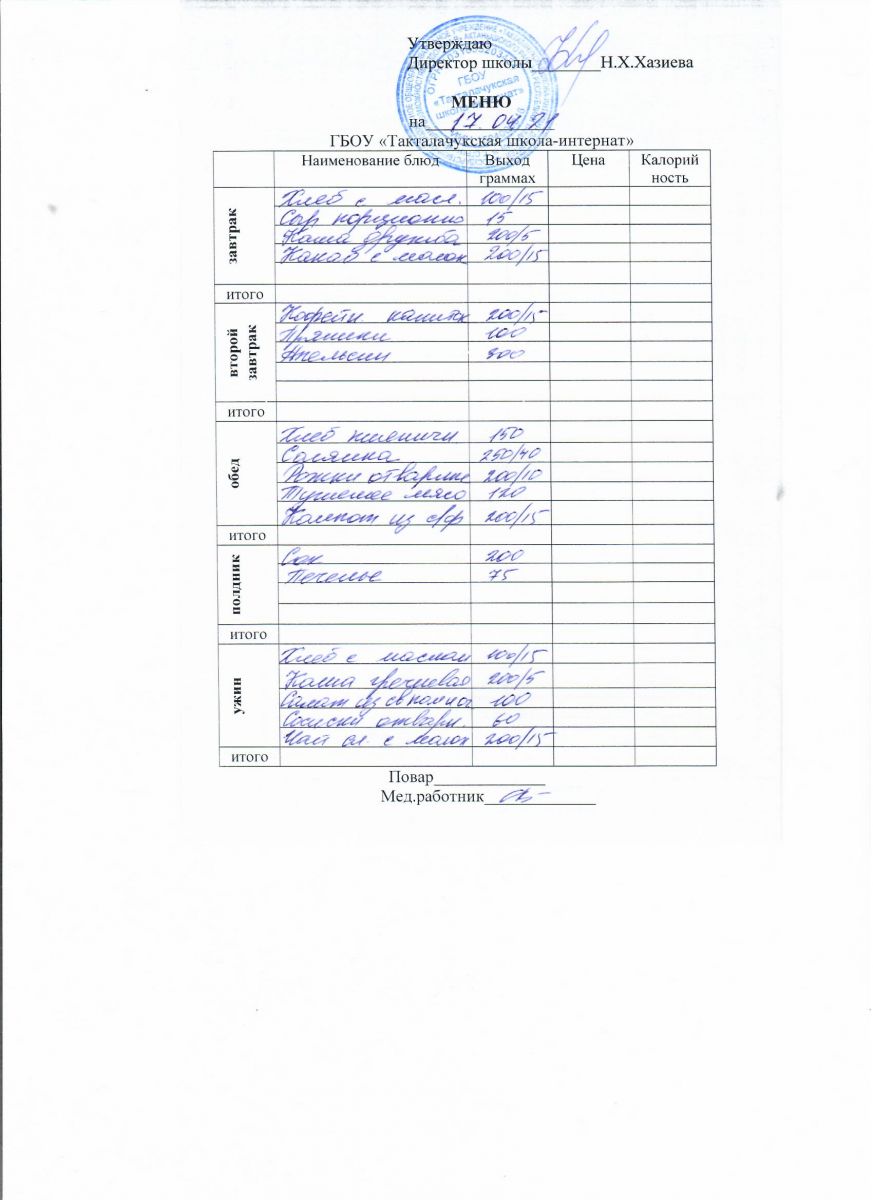 Утверждаю
Директор школы ________Н.Х.Хазиева
МЕНЮ
на 17.04.21
ГБОУ «Такталачукская школа-интернат»
Наименование блюд Выход граммах Цена Калорий ность
завтрак
Хлеб с масл. 100/15
Сыр порционно 15
Каша дружба 200/5
Какао с молок 200/15
итого
второй завтрак
Кофейн напиток 200/15
Пряники 100
Апельсин 300
итого
обед
Хлеб пшеничн 150
Солянка 250/40
Рожки отварные 200/10
Тушеное мясо 120
Компот из с/ф 200/15
итого
полдник
Сок 200
Печенье 75
итого
ужин
Хлеб с маслом 100/15
Каша гречневая 200/5
Салат из св помид 100
Сосиски отварн. 60
Чай сл. с молок 200/15
итого
Повар_____________
Мед.работник_____________
ГБОУ
«Такталачукская
школа-интернат»